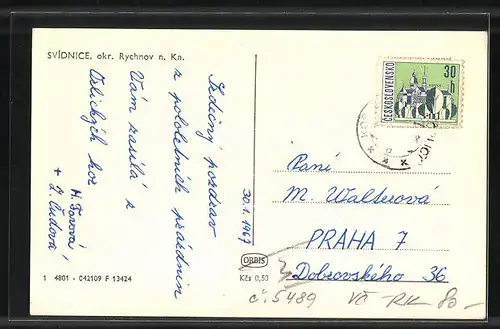 SVÍDNICE, okr. Rychnov n. Kn.
Srdečný pozdrav
z pololetních prázdnin
Vám zasílá z
Orlických hor
H.
+ J. Čudová
30.1.1967
1 4801 - C42109 F 13424
ORBIS
Kčs 0,50
ČESKOSLOVENSKO
30
h
Paní
M. Walterová
PRAHA 7
Dobrovského 36
č. 5489 VČ RK 80-